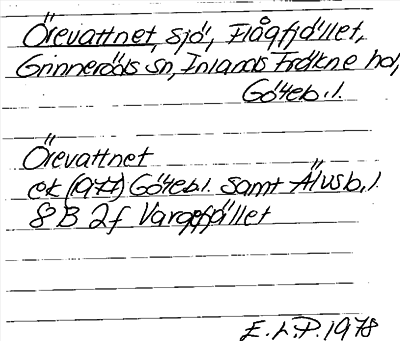 Örevattnet, sjö, Flågfjället,
Grinneröds sn, Inlands Fräkne hd,
Göteb. l.
Örevattnet
ek (1977) Göteb l. samt Älvsb. l.
8 B 2f Vargfjället
E. L. P. 1978